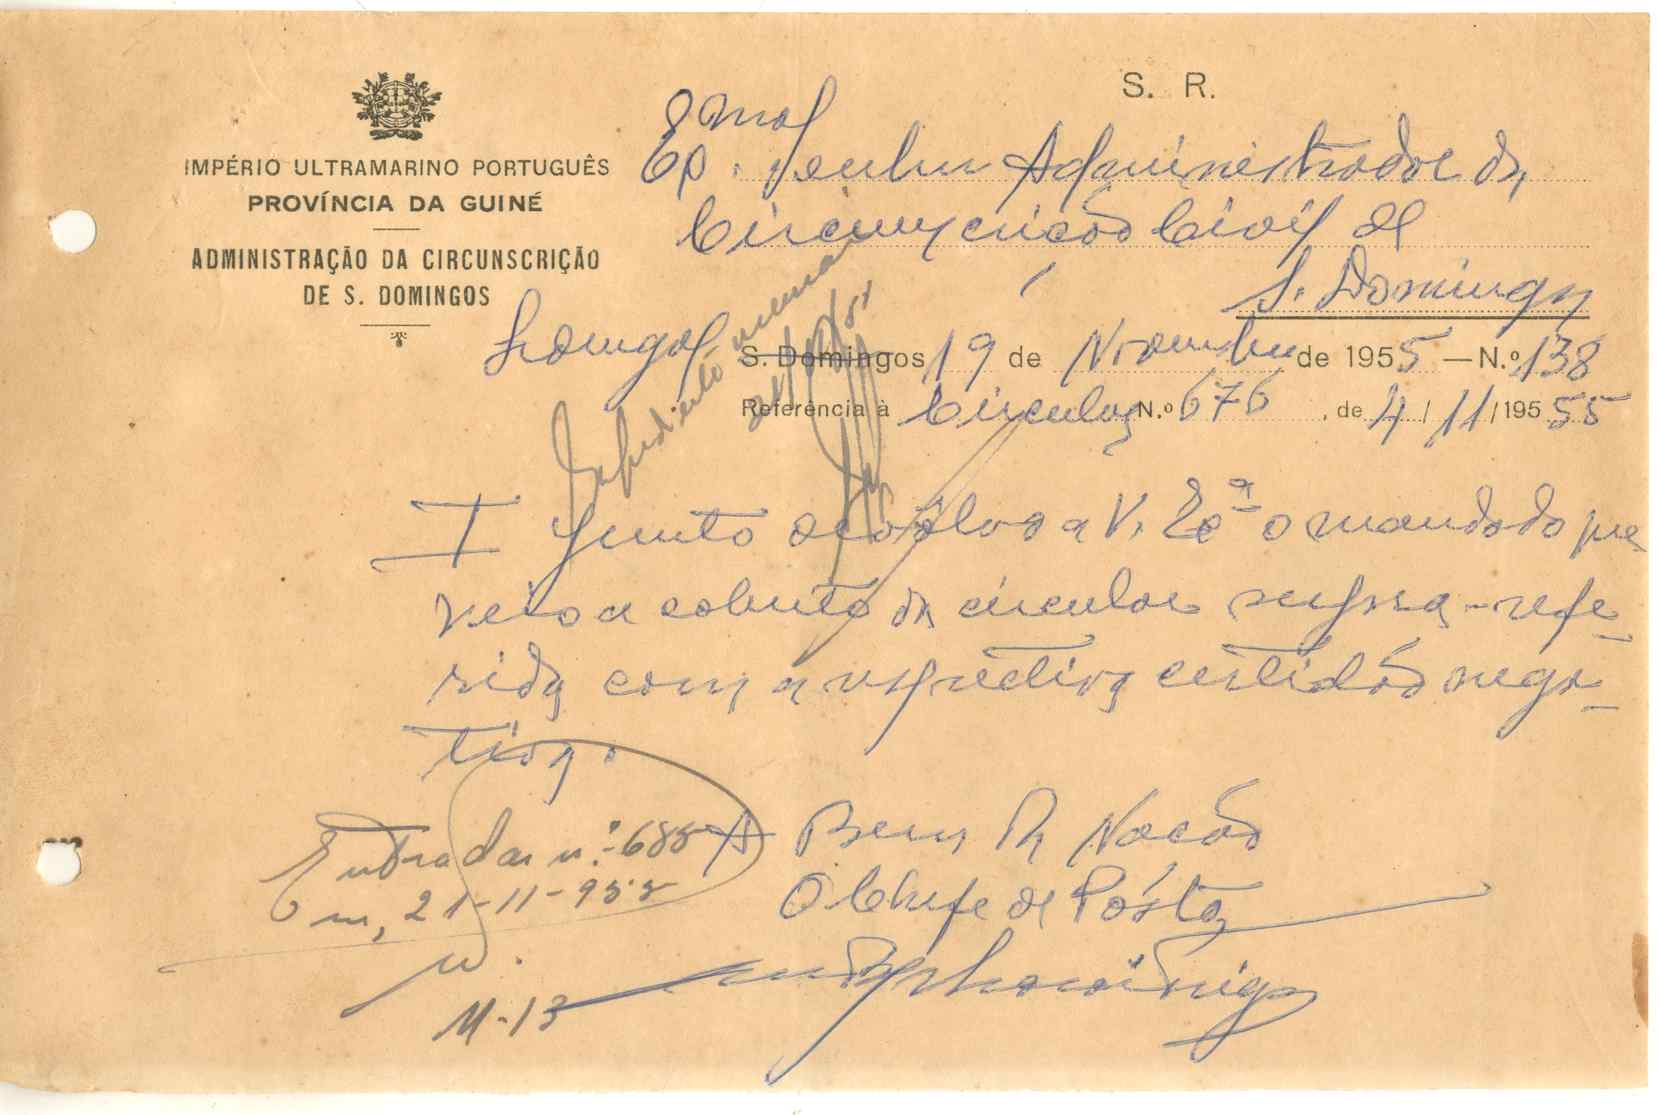 S. R.
IMPÉRIO ULTRAMARINO PORTUGUÊS
PROVÍNCIA DA GUINÉ
ADMINISTRAÇÃO DA CIRCUNSCRIÇÃO
DE S. DOMINGOS
Exmo. Senhor Administrador da
Circunscrição Civil de
S. Domingos
S. Domingos 19 de Novembro de 1955 — N.º 138
Referência à Circular N.º 676, de 4/11/195 55
I Junto devolvo a V. Exª o mandado que
veio a coberto da circular supra-refe-
rida com a respectiva certidão nega-
tiva.
A Bem da Nação
O Chefe de Pôsto,
Entrada n.º 688
Em, 21-11-955
M-13